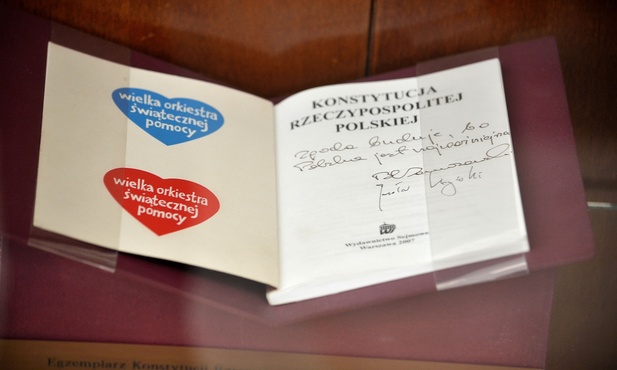 wielka orkiestra
świątecznej
pomocy
wielka orkiestra
świątecznej
pomocy
KONSTYTUCJA
RZECZYPOSPOLITEJ
POLSKIEJ
Zgoda buduje, bo
Polska jest najważniejsza
Wydawnictwo Sejmowe
Warszawa 2007
Egzemplarz Konstytucji